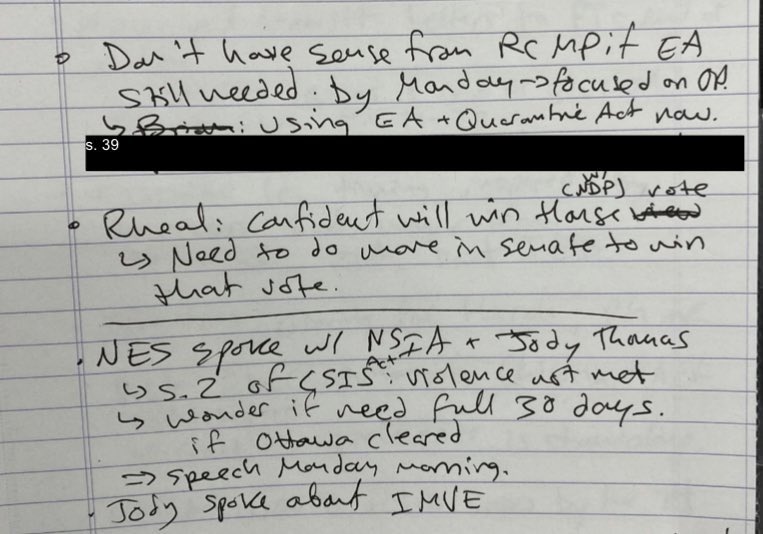 Don't have sense from RCMP if EA
still needed. By Monday → focused on OP.
↳ Brian: using EA + Quarantine Act now.
s. 39
(w/ NDP) vote
• Rheal: confident will win House view
↳ Need to do more in senate to win
that vote.
• NES spoke w/ NSIA + Jody Thomas
↳ s.2 of CSIS Act: violence not met
↳ wonder if need full 30 days.
if Ottawa cleared
⇒ speech Monday morning.
• Jody spoke about IMVE